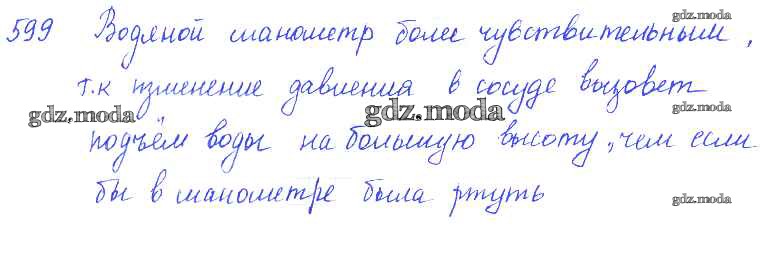 gdz.moda
599 Водяной манометр более чувствительным,
т.к изменение давления в сосуде вызовет
gdz.moda gdz.moda gdz.moda
подъём воды на большую высоту, чем если
бы в манометре была ртуть
gdz.moda